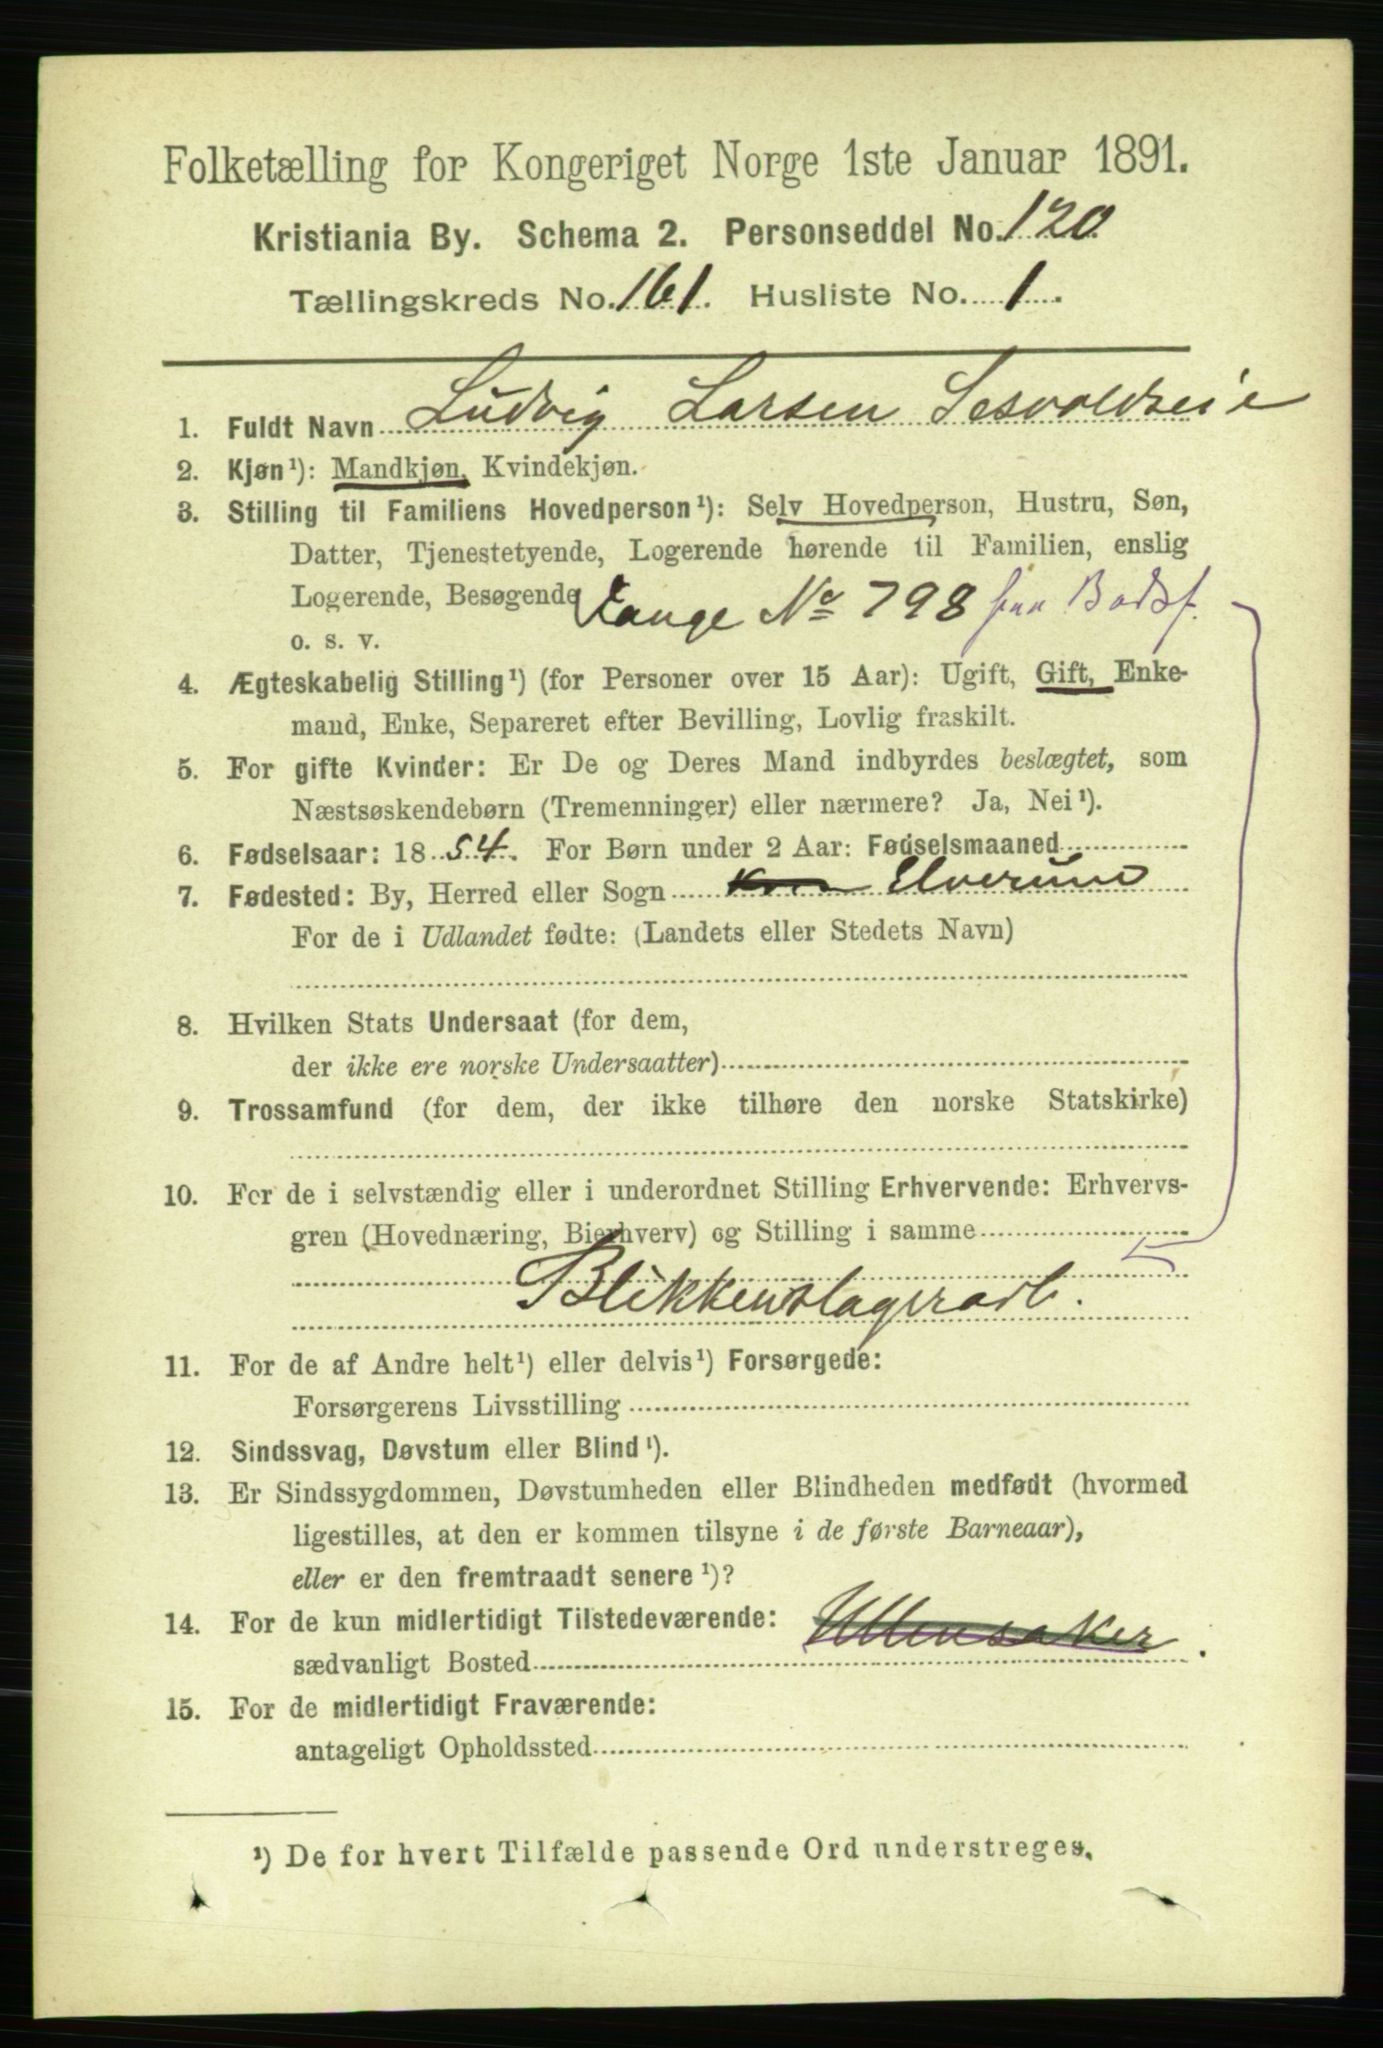 Folketælling for Kongeriget Norge 1ste Januar 1891.
Kristiania By. Schema 2. Personseddel No. 120
Tællingskreds No. 161. Husliste No. 1.
1. Fuldt Navn Ludvig Larsen Sesvoldseie
2. Kjøn¹): Mandkjøn, Kvindekjøn.
3. Stilling til Familiens Hovedperson¹): Selv Hovedperson, Hustru, Søn,
Datter, Tjenestetyende, Logerende hørende til Familien, enslig
Logerende, Besøgende
Fange No 798 paa Bodsf.
o. s. v.
4. Ægteskabelig Stilling¹) (for Personer over 15 Aar): Ugift, Gift, Enke-
mand, Enke, Separeret efter Bevilling, Lovlig fraskilt.
5. For gifte Kvinder: Er De og Deres Mand indbyrdes beslægtet, som
Næstsøskendebørn (Tremenninger) eller nærmere? Ja, Nei¹).
6. Fødselsaar: 1854. For Børn under 2 Aar: Fødselsmaaned
7. Fødested: By, Herred eller Sogn Elverum
For de i Udlandet fødte: (Landets eller Stedets Navn)
8. Hvilken Stats Undersaat (for dem,
der ikke ere norske Undersaatter)
9. Trossamfund (for dem, der ikke tilhøre den norske Statskirke)
10. For de i selvstændig eller i underordnet Stilling Erhvervende: Erhvervs-
gren (Hovednæring, Bierhverv) og Stilling i samme
Blikkenslagerarb.
11. For de af Andre helt¹) eller delvis¹) Forsørgede:
Forsørgerens Livsstilling
12. Sindssvag, Døvstum eller Blind¹).
13. Er Sindssygdommen, Døvstumheden eller Blindheden medfødt (hvormed
ligestilles, at den er kommen tilsyne i de første Barneaar),
eller er den fremtraadt senere¹)?
14. For de kun midlertidigt Tilstedeværende:
sædvanligt Bosted Ullensaker.
15. For de midlertidigt Fraværende:
antageligt Opholdssted
¹) De for hvert Tilfælde passende Ord understreges.